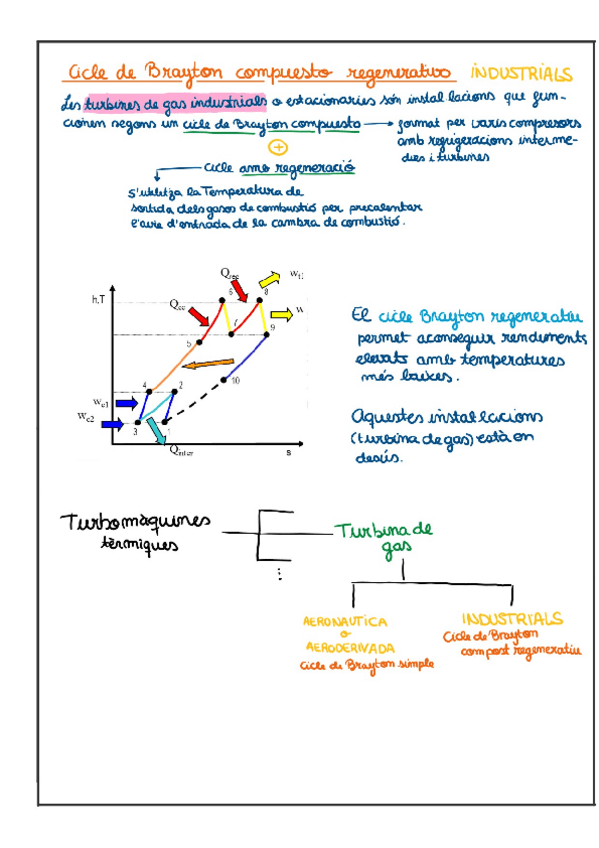 Cicle de Brayton compuesto regenerativo INDUSTRIALS
Les turbines de gas industrials o estacionaries són instal·lacions que fun-
cionen segons un cicle de Brayton compuesto → format per varis compresors
amb refrigeracions interme-
dies i turbines
+
cicle amb regeneració
S'utilitza la Temperatura de
sortida dels gasos de combustió per precalentar
l'aire d'entrada de la cambra de combustió.
h,T
6
8
7
9
5
10
4
2
3
1
s
El cicle Brayton regeneratiu
permet aconseguir rendiments
elevats amb temperatures
més baixes.
Aquestes instal·lacions
(turbina de gas) està en
desús.
Turbomàquines
tèrmiques
Turbina de
gas
⋮
AERONAUTICA
o
AERODERIVADA
Cicle de Brayton simple
INDUSTRIALS
Cicle de Brayton
compost regeneratiu